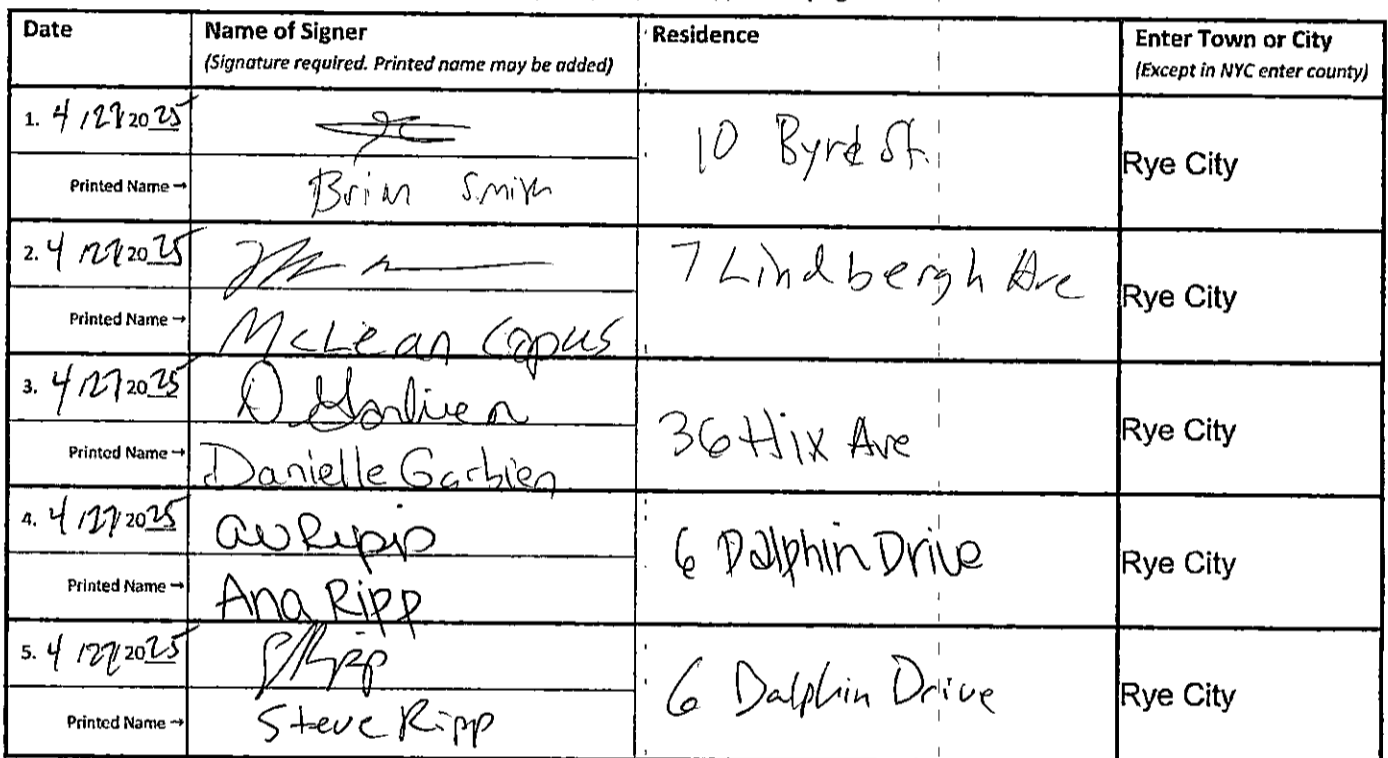 Date Name of Signer Residence Enter Town or City
(Signature required. Printed name may be added) (Except in NYC enter county)
1. 4/27/2025
10 Byrd St. Rye City
Printed Name → Brian Smith
2. 4/27/2025
7 Lindbergh Ave Rye City
Printed Name → McLean Capus
3. 4/27/2025 D Garbien
36 Hix Ave Rye City
Printed Name → Danielle Garbien
4. 4/27/2025 Ripp
6 Dalphin Drive Rye City
Printed Name → Ana Ripp
5. 4/27/2025 Ripp
6 Dalphin Drive Rye City
Printed Name → Steve Ripp